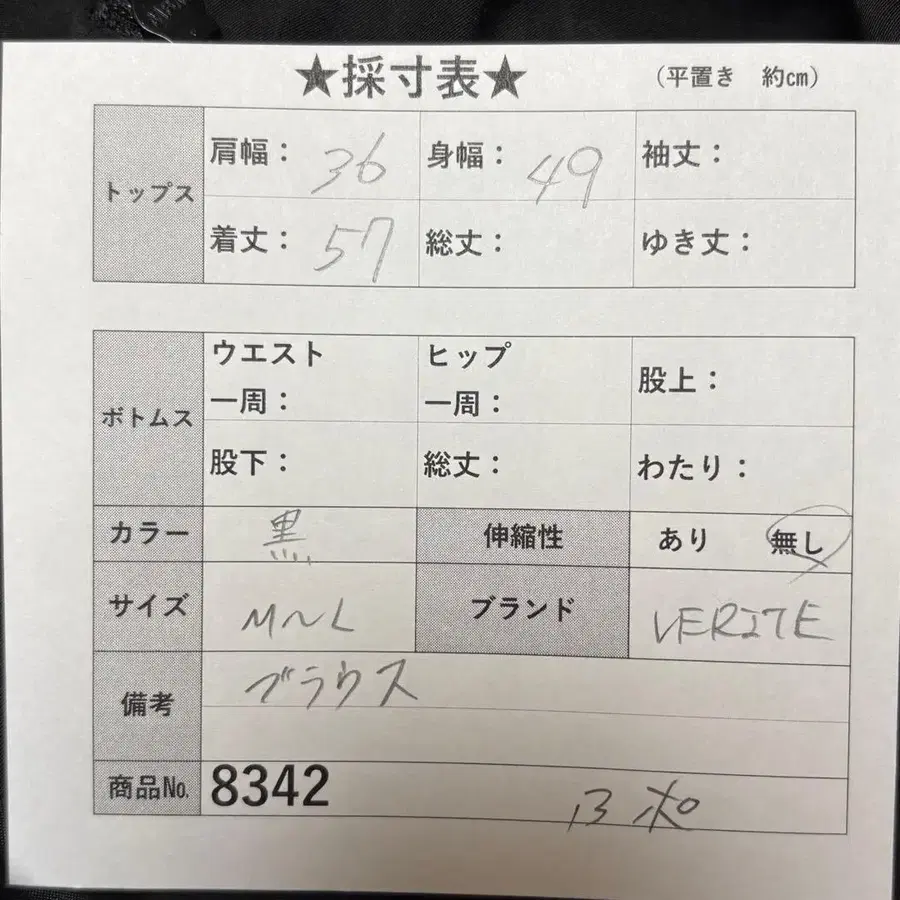 ★採寸表★ (平置き 約cm)
トップス
肩幅： 36 身幅： 49 袖丈：
着丈： 57 総丈： ゆき丈：
ボトムス
ウエスト一周： ヒップ一周： 股上：
股下： 総丈： わたり：
カラー 黒 伸縮性 あり 無し
サイズ M〜L ブランド VERITE
備考 ブラウス
商品No. 8342